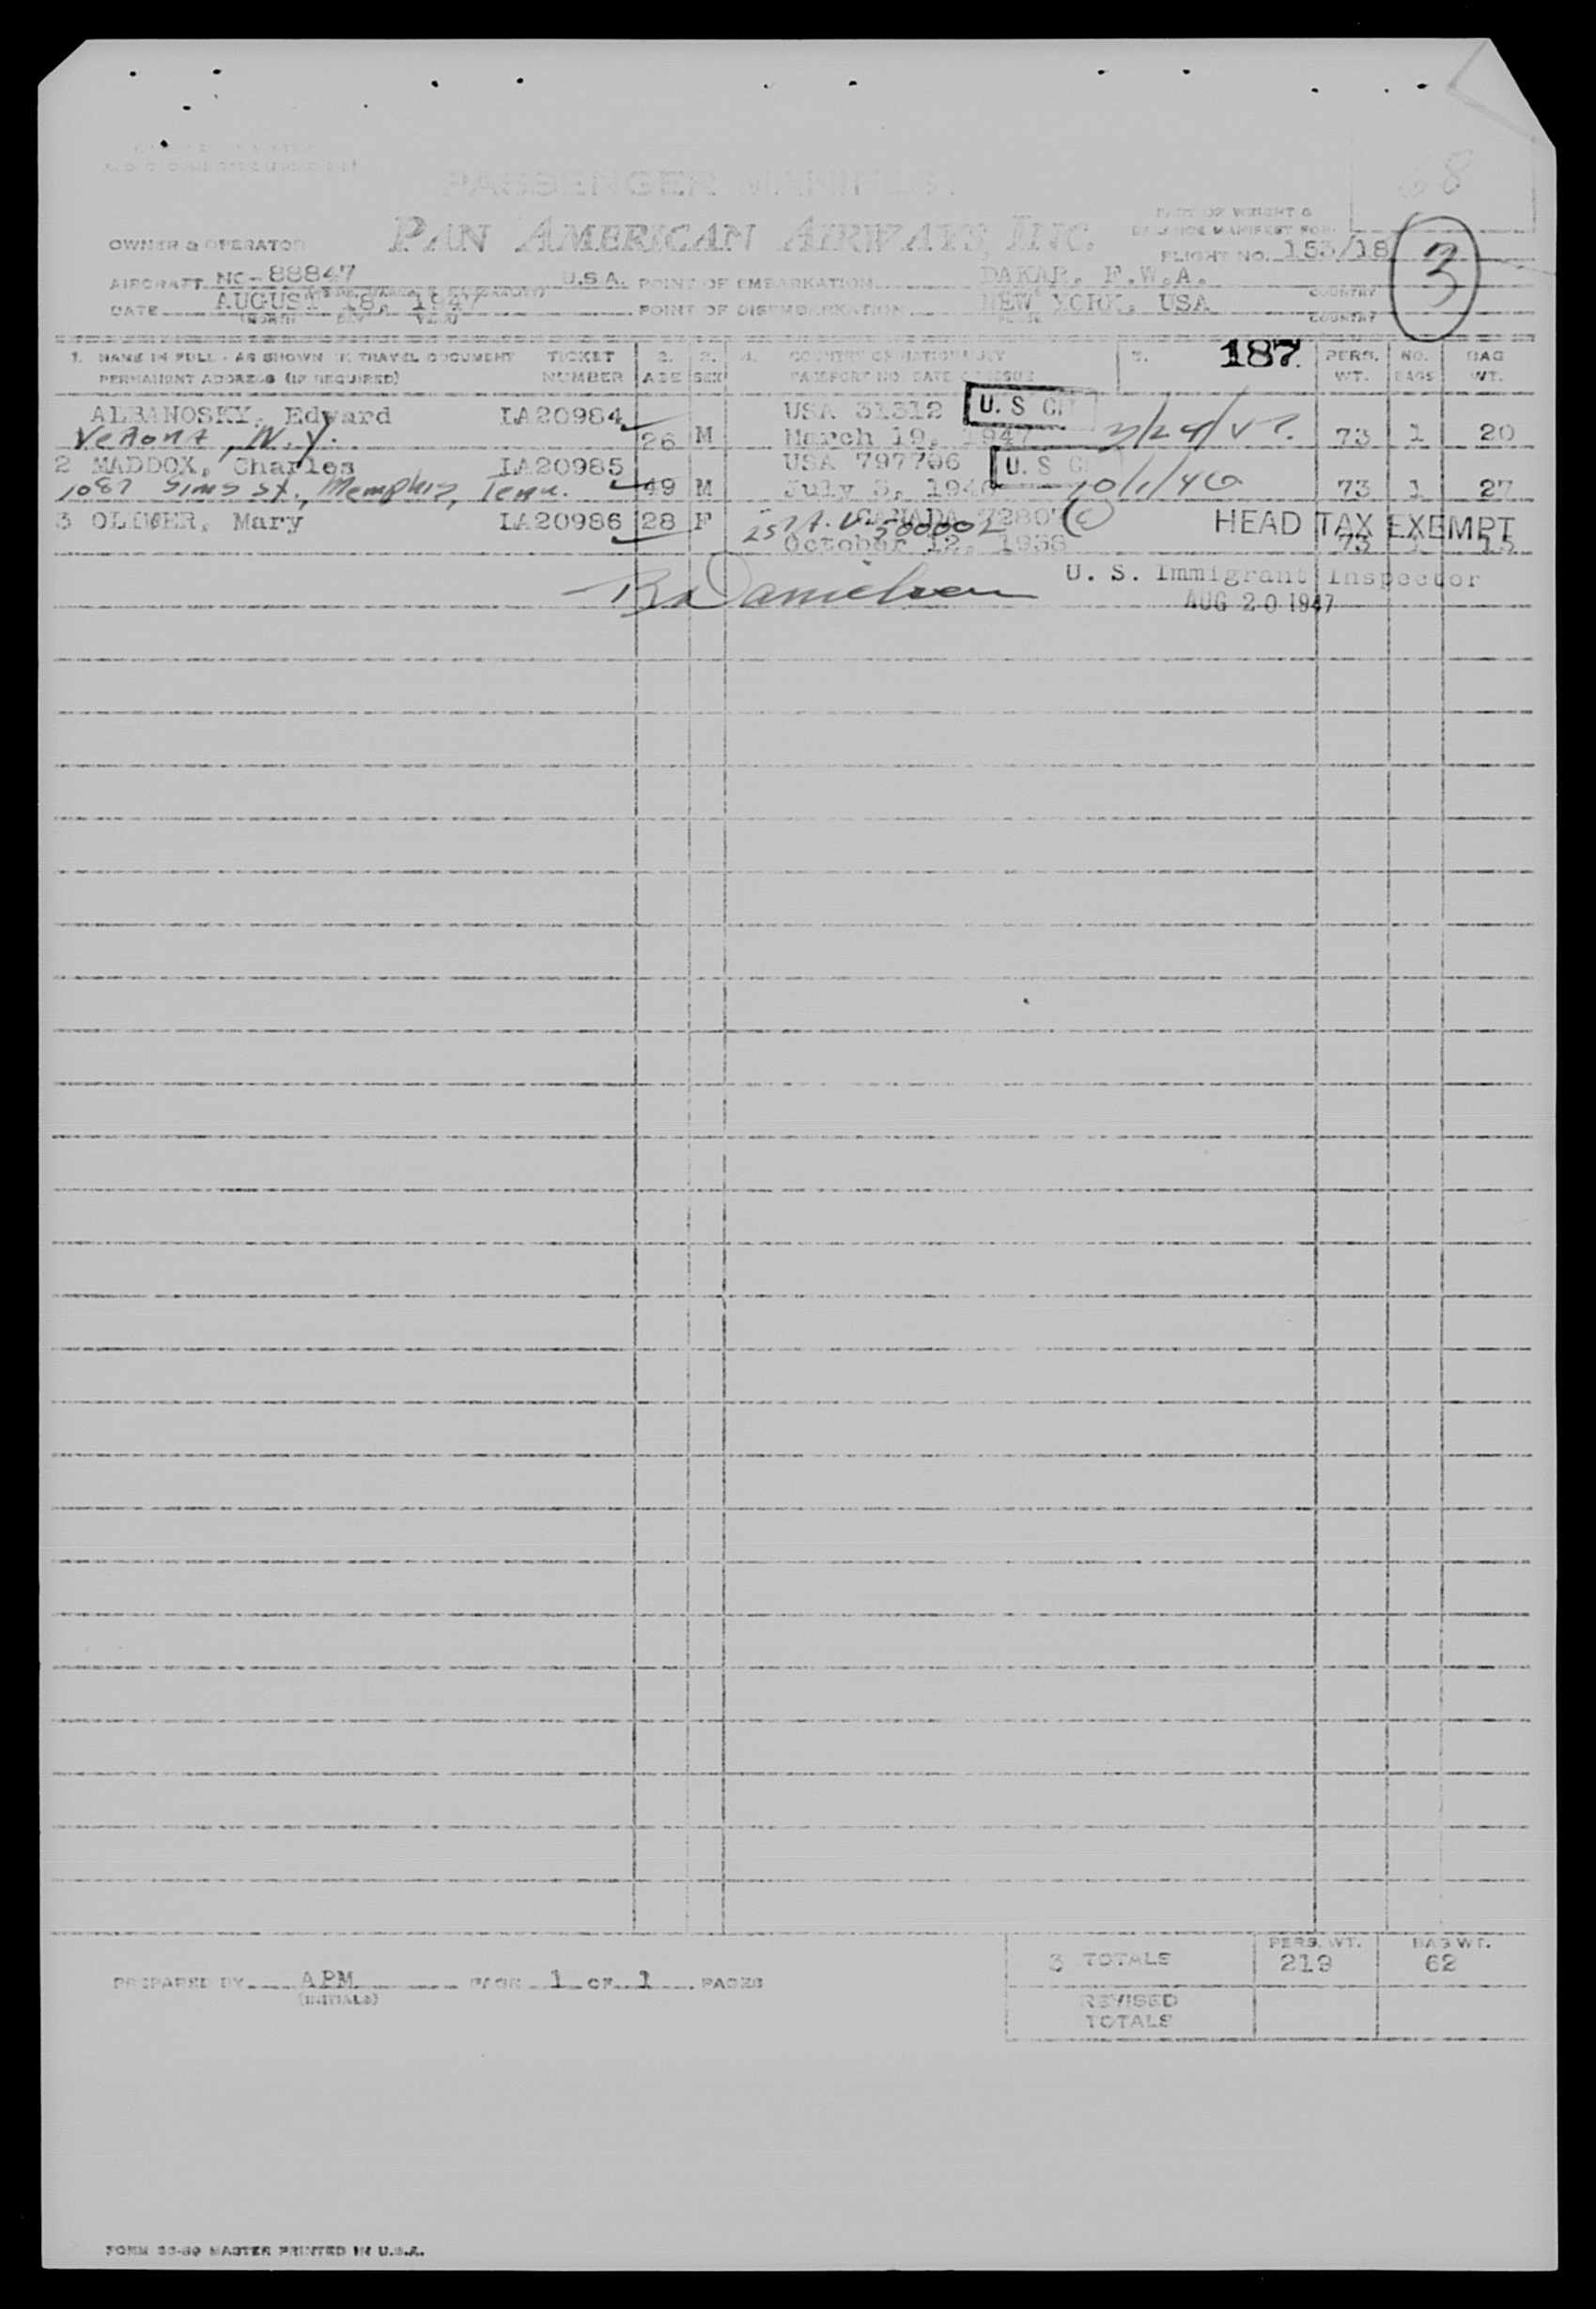 PASSENGER MANIFEST
68
PART OF WEIGHT &
BALANCE MANIFEST FOR
OWNER & OPERATOR PAN AMERICAN AIRWAYS, INC.
FLIGHT NO. 153/18
3
AIRCRAFT NC-88847 U.S.A. POINT OF EMBARKATION DAKAR, F.W.A.
COUNTRY
DATE AUGUST 18, 1947 POINT OF DISEMBARKATION NEW YORK, USA
(MONTH DAY YEAR) PLACE COUNTRY
1. NAME IN FULL - AS SHOWN IN TRAVEL DOCUMENT TICKET 2. 3. 4. COUNTRY OF NATIONALITY 5. 187 PERS. NO. BAG
PERMANENT ADDRESS (IF REQUIRED) NUMBER AGE SEX PASSPORT NO. DATE OF ISSUE WT. BAGS WT.
ALBANOSKY, Edward IA20984 USA 31312 U. S CIT
Verona, N.Y. 26 M March 19, 1947 73 1 20
2 MADDOX, Charles IA20985 USA 797706 U. S C
1087 Sims St., Memphis, Tenn. 49 M July 3, 1946 10/1/46 73 1 27
3 OLIVER, Mary IA20986 28 F CANADA 72807 HEAD TAX EXEMPT
October 12, 1938 73 1 15
U. S. Immigrant Inspector
AUG 20 1947
3 TOTALS PERS. WT. 219 BAG WT. 62
PREPARED BY APM PAGE 1 OF 1 PAGES
(INITIALS)
REVISED
TOTALS
FORM 33-89 MASTER PRINTED IN U.S.A.